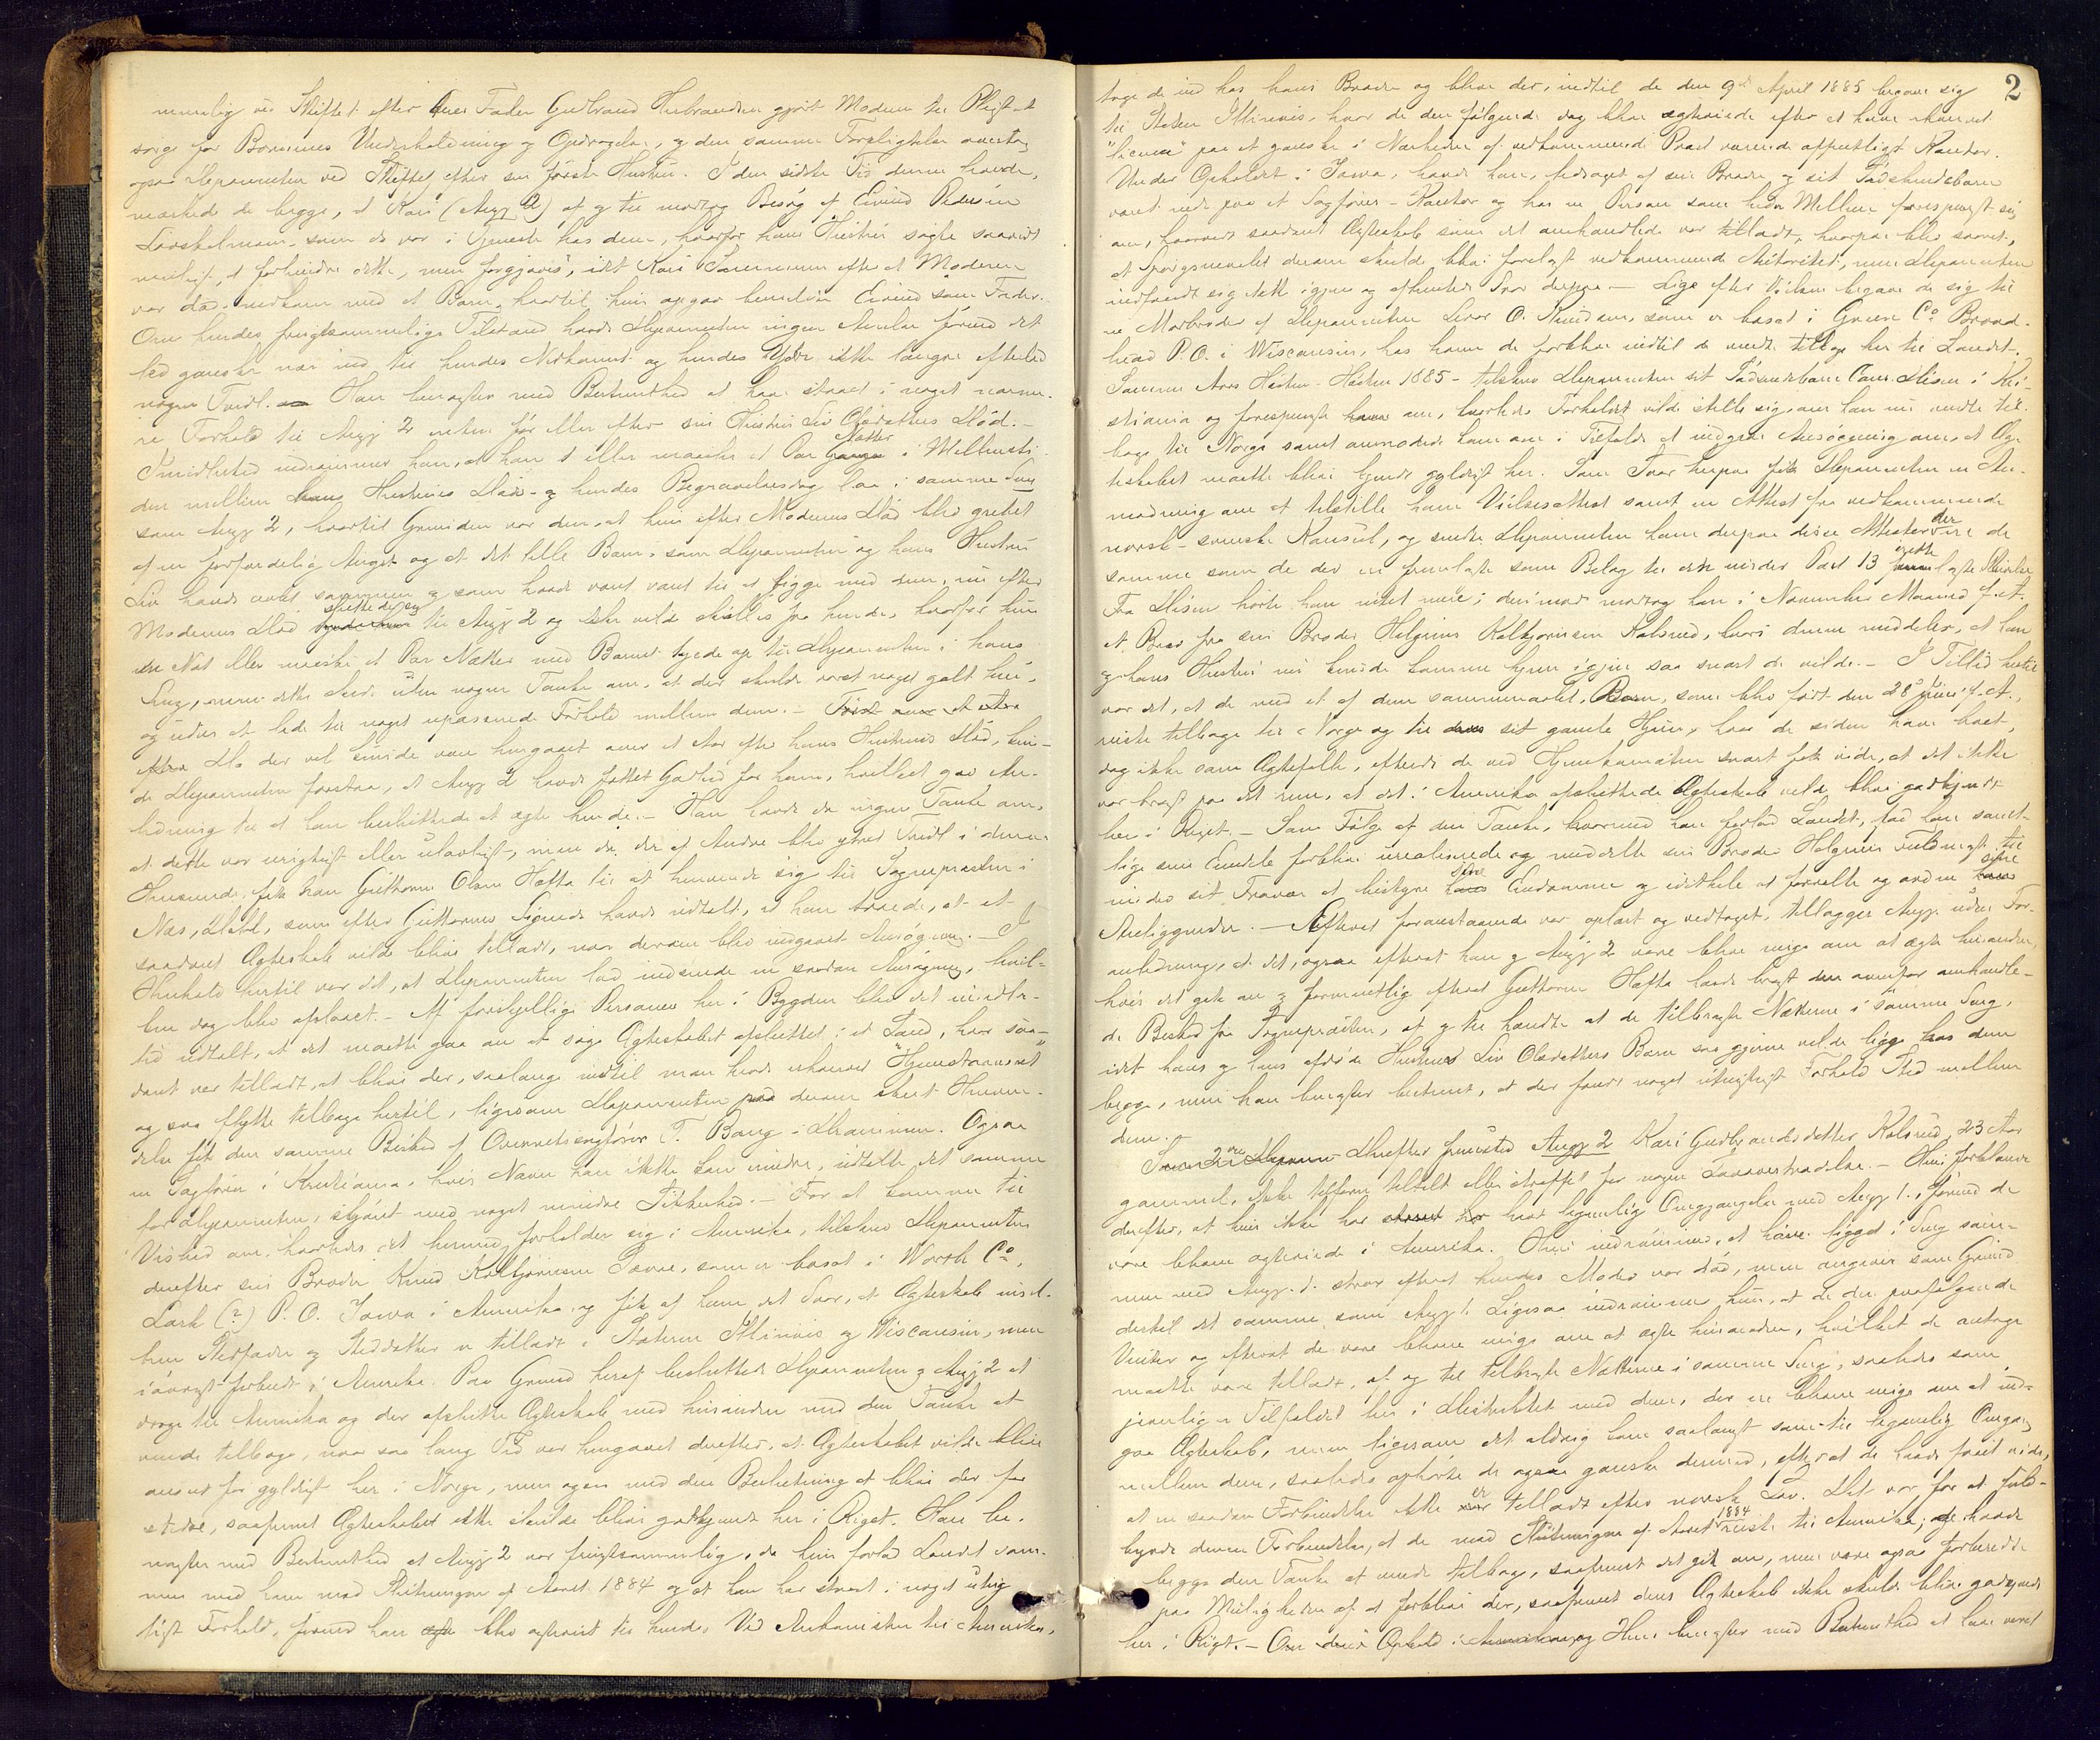 nemlig ved Skiftet efter hues Fader Gudbrand Herbrandsen gjort Moderen til Pligt at
sørge for Børnenes Underholdning og Opdragelse, og den samme Forpligtelse overtog
ogsaa Deponenten ved Skiftet efter sin første Hustru. I den sidste Tid denne levede,
mærkede de begge, at Kari (Angj 2) af og til modtog Besøg af Eivind Pedersen
som da var i Tjeneste hos dem, hvorfor hans Hustru søgte saavidt
muligt, at forhindre dette, men forgjæves, idet Kari Sommeren efter at Moderen
var død nedkom med et Barn, hvortil hun opgav bemeldte Eivind som Fader.
Om hendes frugtsommelige Tilstand havde Deponenten ingen Anelse førend det
led ganske nær ind til hendes Nedkomst og hendes Ydre ikke længere efterlod
nogen Tvivl. Han benægter med Bestemthed at have staaet i noget nærme-
re Forhold til Angj 2 enten før eller efter sin Hustru Liv Olsdatters Død.-
Imidlertid indrømmer han, at han 1 eller maaske et Par Nætter i Mellemti-
den mellem hans Hustrues Død og hendes Begravelsesdag laa i samme Seng
som Angj 2, hvortil Grunden var den, at hun efter Moderens Død blev grebet
af en forfærdelig Angst og at det lille Barn, som Deponenten og hans Hustru
Liv havde avlet sammen og som havde været vant til at ligge med dem, nu efter
Moderens Død sluttede sig til Angj 2 og ikke vilde skilles fra hende, hvorfor hun
en Nat eller maaske et Par Nætter med Barnet tyede op til Deponenten i hans
Seng, men dette skede uden nogen Tanke om, at der skulde være noget galt heri,
og uden at lede til noget upassende Forhold mellem dem.-
Da der vel kunde være hengaaet over et Aar efter hans Hustrues Død, kun-
de Deponenten forstaa, at Angj 2 havde fattet Godhed for ham, hvilket gav An-
ledning til at han besluttede at ægte hende.- Han havde da ingen Tanke om,
at dette var urigtigt eller ulovligt, men da der af Andre blev ytret Tvivl i denne
Henseende, fik han Guttorm Olsen Hafta til at henvende sig til Sognepræsten i
Næs, Dahl, som efter Guttorms Sigende havde udtalt, at han troede, at et
saadant Ægteskab vilde blive tilladt, naar derom blev indgaaet Ansøgning.- I
Henhold hertil var det, at Deponenten lod indsende en saadan Ansøgning, hvil-
ken dog blev afslaaet.- Af forskjellige Personer her i Bygden blev det imidler-
tid udtalt, at det maatte gaa an at søge Ægteskabet afsluttet i et Land, hvor saa-
dant var tilladt, at blive der, saalænge indtil man havde erhvervet "Hjemstavnsret"
og saa flytte tilbage hertil, ligesom Deponenten paa derom skeet Henven-
delse fik den samme Besked af Overretssagfører T. Bang i Drammen. Ogsaa
en Sagfører i Kristiania, hvis Navn han ikke kan mindes, udtalte det samme
for Deponenten, skjønt med noget mindre Sikkerhed.- For at komme til
Vished om, hvorledes det hermed forholder sig i Amerika, tilskrev Deponenten
derefter sin Broder Knud Kolbjørnsen Sævre, som er bosat i Worth Co.
Lark (?) P.O. Iowa i Amerika og fik af ham det Svar, at Ægteskab mel-
lem Stedfader og Steddatter er tilladt i Staterne Illinois og Wisconsin, men
iøvrigt forbudt i Amerika. Paa Grund heraf besluttede Deponenten og Angj 2 at
drage til Amerika og der afslutte Ægteskab med hinanden med den Tanke at
vende tilbage, naar saa lang Tid var hengaaet derefter, at Ægteskabet vilde blive
anseet for gyldigt her i Norge, men ogsaa med den Beslutning at blive der for
stedse, saafremt Ægteskabet ikke skulde blive godkjendt her i Riget. Han be-
nægter med Bestemthed at Angj 2 var frugtsommelig, da hun forlod Landet sam-
men med ham mod Slutningen af Aaret 1884 og at han har staaet i noget utug-
tigt Forhold, førend han blev ægteviet til hende. Ved Ankomsten til Amerika,
2
toge de ind hos hans Broder og bleve der, indtil de den 9de April 1885 begave sig
til Staten Illinois, hvor de den følgende Dag bleve ægteviede efter at have erhvervet
"licence" paa et ganske i Nærheden af vedkommende Præst værende offentligt Kontor.
Under Opholdet i Iowa, havde han, ledsaget af sin Broder og sit Sødskendebarn
været nede paa et Sagfører-Kontor og hos en Person som hed Mellem forespurgt sig
om, hvorvidt saadant Ægteskab som det omhandlede var tilladt, hvorpaa blev svaret,
at Spørgsmaalet derom skulde blive forelagt vedkommende Autoritet, men Deponenten
indfandt sig ikke igjen og afhentede Svar derpaa.- Lige efter Vielsen begave de sig til
en Morbroder af Deponenten Iver O. Knudsen, som er bosat i Green Co. Broad-
head P.O. i Wisconsin, hos hvem de forbleve indtil de vendte tilbage her til Landet.-
Samme Aars Høsten - Høsten 1885 - tilskrev Deponenten sit Sødskendebarn Disen i Kri-
stiania og forespurgte ham om, hvorledes Forholdet vilde stille sig, om han nu vendte til-
bage til Norge samt anmodede ham om i Tilfælde at indgaa Ansøgning om, at Æg-
teskabet maatte blive kjendt gyldigt her. Som Svar herpaa fik Deponenten en An-
modning om at tilstille ham Vielsesattest samt en Attest fra vedkommende
norsk-svenske Konsul, og sendte Deponenten ham derpaa disse Attester der ere de
samme som de der er fremlagte som Belæg til det under Post 13 fremlagte Skrivelse
Fra Disen hørte han intet mere; derimod modtog han i November Maaned f.A.
et Brev fra sin Broder Helgrim Kolbjørnsen Kolsrud, hvori denne meddeler, at han
og hans Hustru nu kunde komme hjem igjen saa snart de vilde.- I Tillid hertil
var det, at de med et af dem sammenavlet Barn, som blev født den 28de Juni f.A.,
reiste tilbage til Norge og til sit gamle Hjem, hvor de siden have boet,
dog ikke som Ægtefolk, efterdi de ved Hjemkomsten snart fik vide, at det ikke
var bragt paa det rene, at det i Amerika afsluttede Ægteskab vilde blive godkjendt
her i Riget.- Som Følge af den Tanke, hvormed han forlod Landet, lod han samt-
lige sine Eiendele forblive urealiserede og meddelte sin Broder Helgrim Fuldmagt til
under sit Fravær at bestyre sine Eiendomme og idethele at forvalte og ordne sine
Anliggender.- Efterat foranstaaende var oplæst og vedtaget, tillægger Angj. uden For-
anledning, at det, ogsaa efterat han og Angj 2 vare blevne enige om at ægte hinanden,
hvis det gik an og formentlig efterat Guttorm Hafta havde bragt den ovenfor omhandle-
de Besked fra Sognepræsten, af og til hændte at de tilbragte Nætterne i samme Seng,
idet hans og hans afdøde Hustrues Liv Olsdatters Barn saa gjerne vilde ligge hos dem
begge, men han benægter bestemt, at der fandt noget utugtigt Forhold Sted mellem
dem.-
Derefter fremstod Angj 2 Kari Gudbrandsdatter Kolsrud, 23 Aar
gammel, ikke tilforn tiltalt eller straffet for nogen Lovovertrædelse.- Hun forklarer
derefter, at hun ikke har havt legemlig Omgjængelse med Angj 1, førend de
vare blevne ægteviede i Amerika. Hun indrømmer, at have ligget i Seng sam-
men med Angj. 1 strax efterat hendes Moder var død, men angiver som Grund
dertil det samme som Angj 1. Ligesaa indrømmer hun, at de den paafølgende
Vinter og efterat de vare blevne enige om at ægte hinanden, hvilket de antoge
maatte være tilladt, af og til tilbragte Nætterne i samme Seng, saaledes som
jevnlig er Tilfældet her i Distriktet med dem, der ere blevne enige om at ind-
gaa Ægteskab, men ligesom det aldrig kom saalangt som til legemlig Omgang
mellem dem, saaledes ophørte de ogsaa ganske dermed, efterat de havde faaet vide,
at en saadan Forbindelse ikke er tilladt efter norsk Lov. Det var for at fuld-
byrde denne Forbindelse, at de mod Slutningen af Aaret 1884 reiste til Amerika; og havde
begge den Tanke at vende tilbage, saafremt det gik an, men vare ogsaa forberedte
paa Muligheden af at forblive der, saafremt deres Ægteskab ikke skulde blive godkjendt
her i Riget.- Hun benægter med Bestemthed at have været